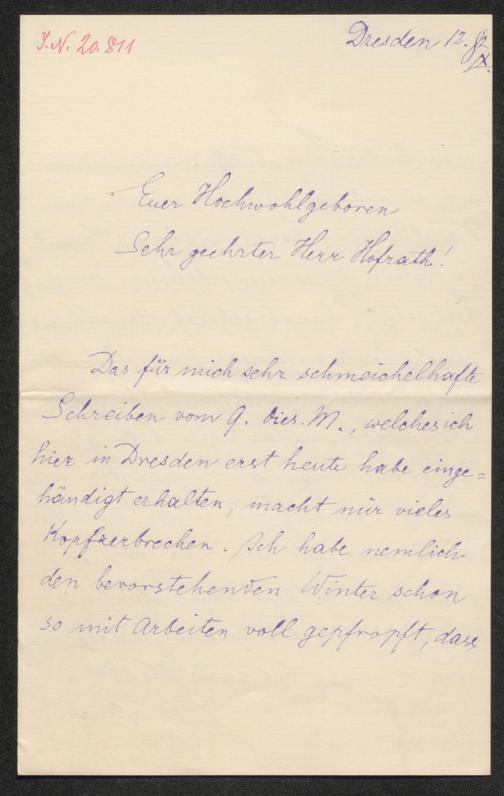 I.N. 20.811
Dresden 12. 82
X.
Euer Hochwohlgeboren
Sehr geehrter Herr Hofrath!
Das für mich sehr schmeichelhafte
Schreiben vom 9. dies. M., welches ich
hier in Dresden erst heute habe einge=
händigt erhalten, macht mir vieles
Kopfzerbrechen. Ich habe nemlich
den bevorstehenden Winter schon
so mit Arbeiten voll gepfropft, dass